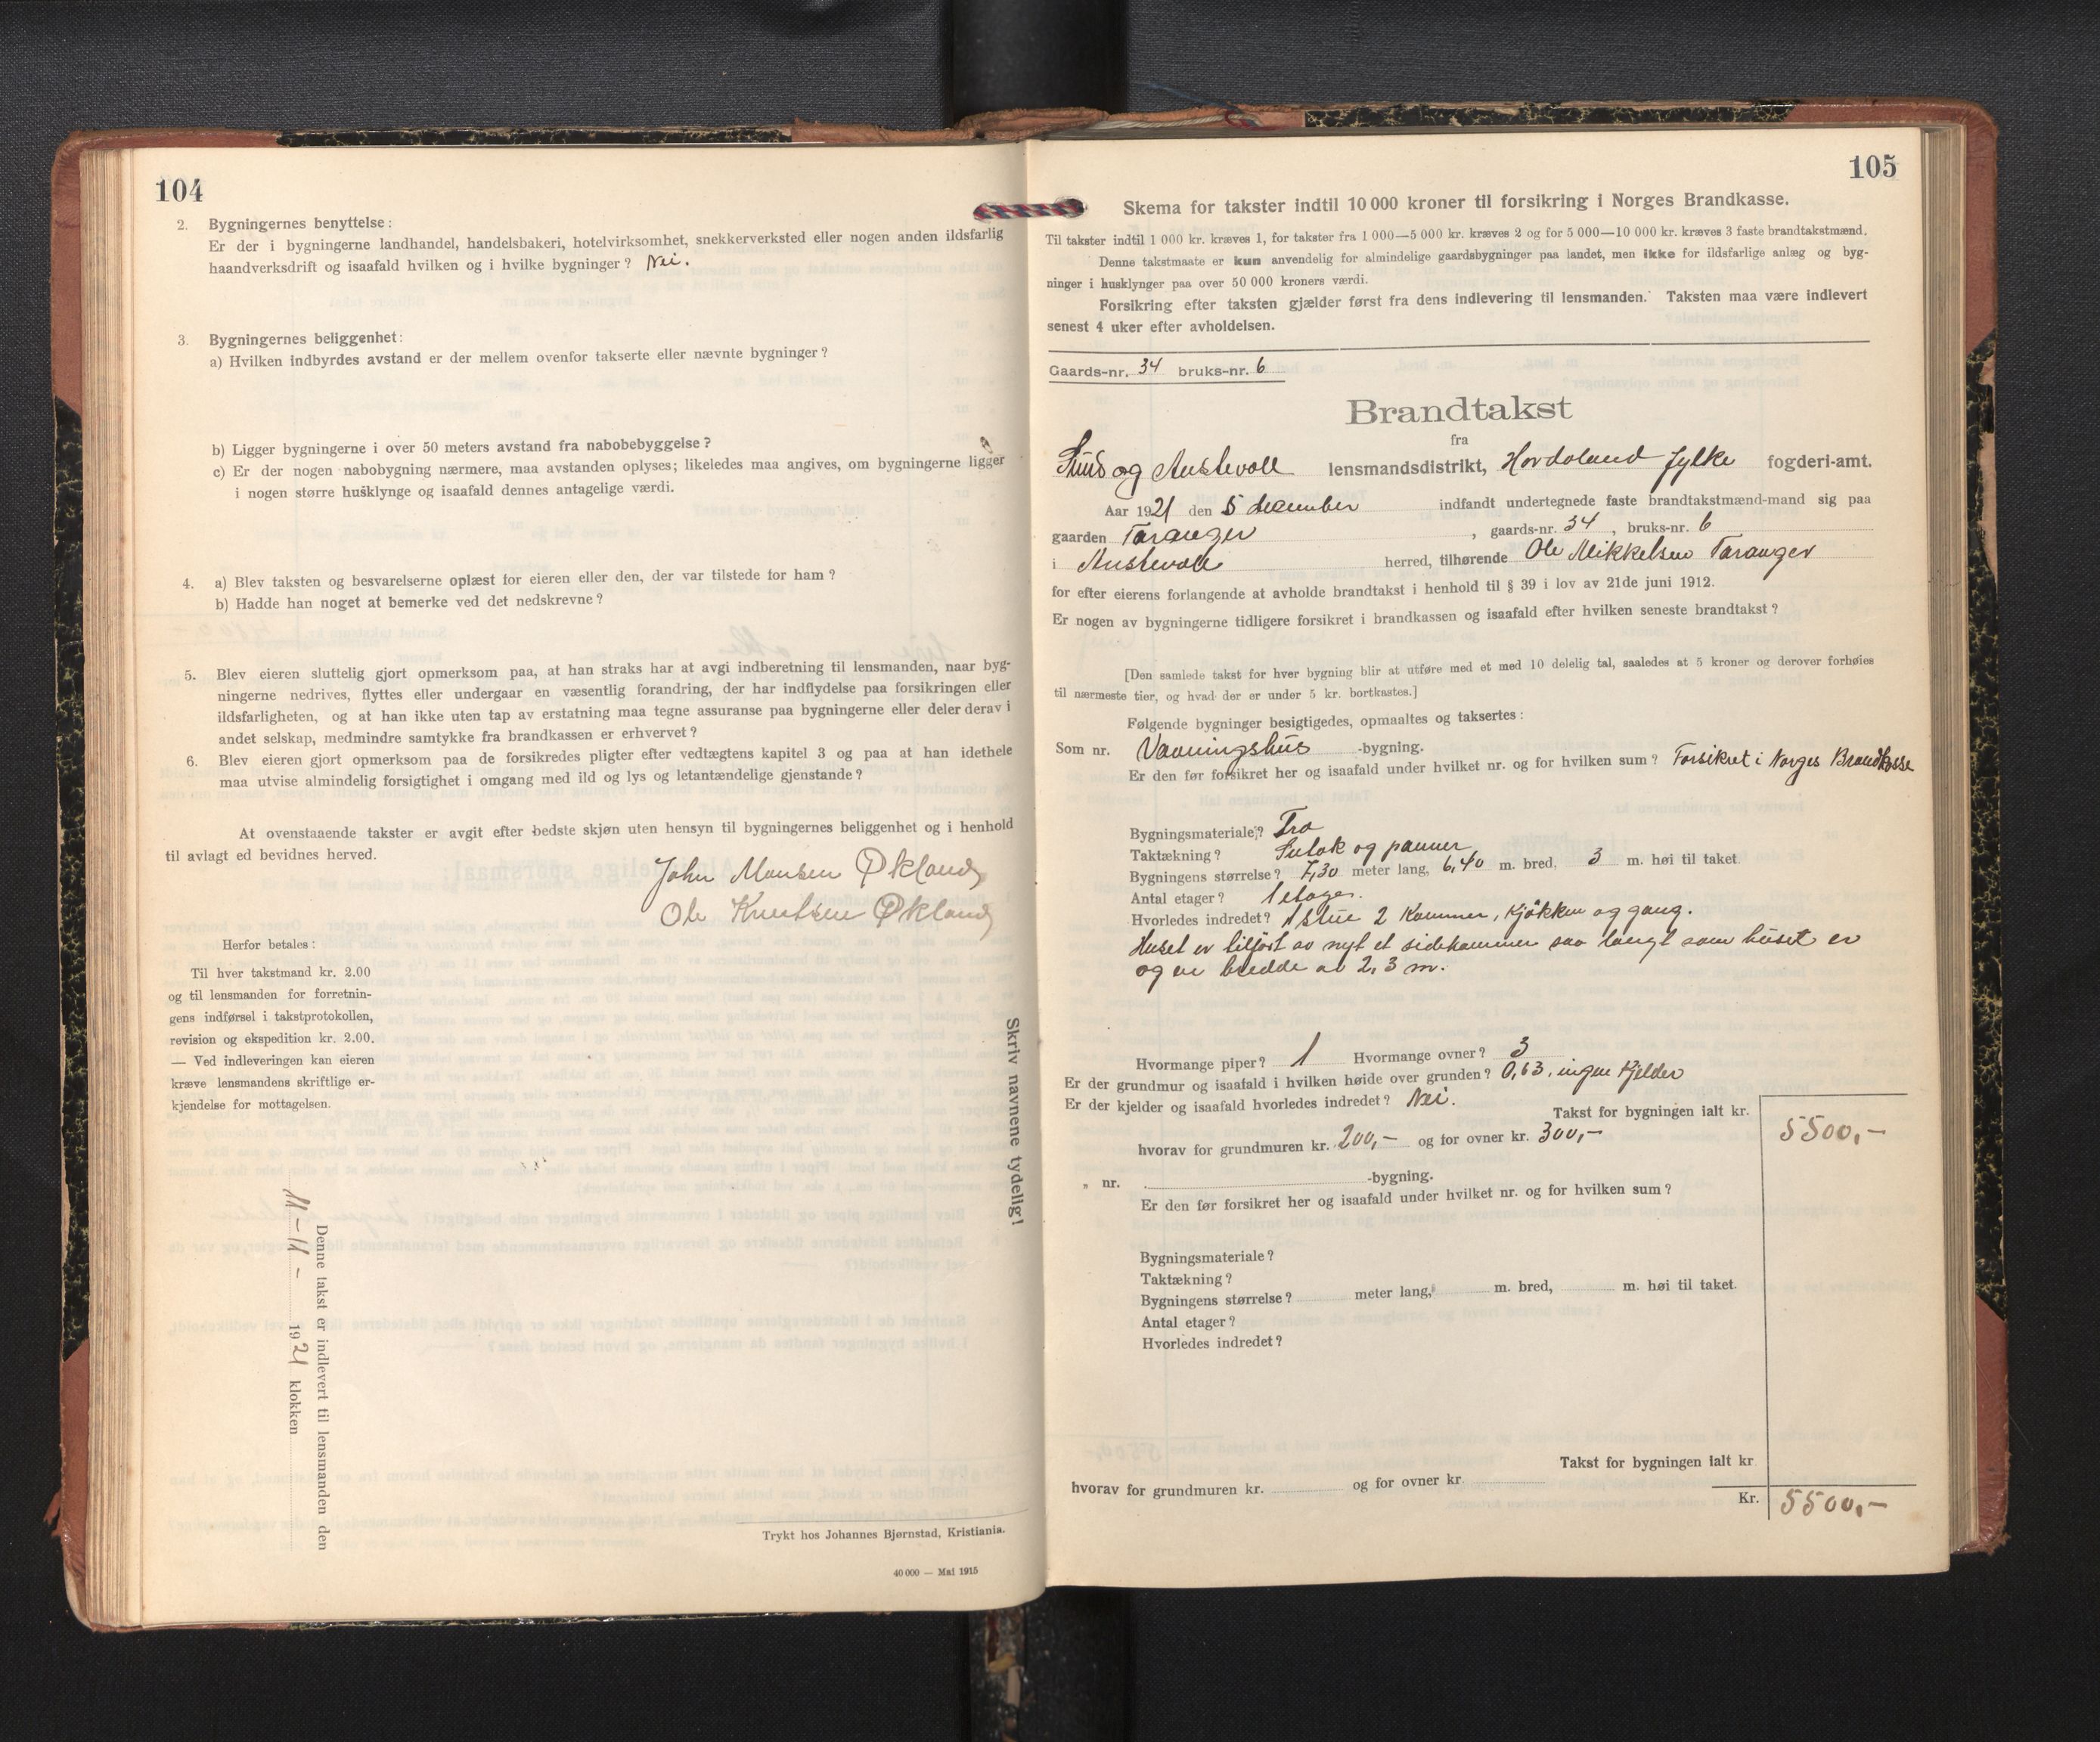 104
2. Bygningernes benyttelse:
Er der i bygningerne landhandel, handelsbakeri, hotelvirksomhet, snekkerverksted eller nogen anden ildsfarlig
haandverksdrift og isaafald hvilken og i hvilke bygninger? Nei.
3. Bygningernes beliggenhet:
a) Hvilken indbyrdes avstand er der mellem ovenfor takserte eller nævnte bygninger?
b) Ligger bygningerne i over 50 meters avstand fra nabobebyggelse?
c) Er der nogen nabobygning nærmere, maa avstanden oplyses; likeledes maa angives, om bygningerne ligger
i nogen større husklynge og isaafald dennes antagelige værdi.
4. a) Blev taksten og besvarelserne oplæst for eieren eller den, der var tilstede for ham?
b) Hadde han noget at bemerke ved det nedskrevne?
5. Blev eieren sluttelig gjort opmerksom paa, at han straks har at avgi indberetning til lensmanden, naar byg-
ningerne nedrives, flyttes eller undergaar en væsentlig forandring, der har indflydelse paa forsikringen eller
ildsfarligheten, og at han ikke uten tap av erstatning maa tegne assuranse paa bygningerne eller deler derav i
andet selskap, medmindre samtykke fra brandkassen er erhvervet?
6. Blev eieren gjort opmerksom paa de forsikredes pligter efter vedtægtens kapitel 3 og paa at han idethele
maa utvise almindelig forsigtighet i omgang med ild og lys og letantændelige gjenstande?
At ovenstaaende takster er avgit efter bedste skjøn uten hensyn til bygningernes beliggenhet og i henhold
til avlagt ed bevidnes herved.
John Monsen Økland
Ole Knutsen Økland
Herfor betales:
Til hver takstmand kr. 2.00
og til lensmanden for forretnin-
gens indførsel i takstprotokollen,
revision og ekspedition kr. 2.00.
— Ved indleveringen kan eieren
kræve lensmandens skriftlige er-
kjendelse for mottagelsen.
Skriv navnene tydelig!
Denne takst er indlevert til lensmanden den
11-11- 1921 klokken
Trykt hos Johannes Bjørnstad, Kristiania.
40 000 — Mai 1915
105
Skema for takster indtil 10 000 kroner til forsikring i Norges Brandkasse.
Til takster indtil 1 000 kr. kræves 1, for takster fra 1 000—5 000 kr. kræves 2 og for 5 000—10 000 kr. kræves 3 faste brandtakstmænd.
Denne takstmaate er kun anvendelig for almindelige gaardsbygninger paa landet, men ikke for ildsfarlige anlæg og byg-
ninger i husklynger paa over 50 000 kroners værdi.
Forsikring efter taksten gjælder først fra dens indlevering til lensmanden. Taksten maa være indlevert
senest 4 uker efter avholdelsen.
Gaards-nr. 34 bruks-nr. 6
Brandtakst
fra
Sund og Austevoll lensmandsdistrikt, Hordaland fylke fogderi-amt.
Aar 1921 den 5 december indfandt undertegnede faste brandtakstmænd-mand sig paa
gaarden Taranger, gaards-nr. 34, bruks-nr. 6
i Austevoll herred, tilhørende Ole Mikkelsen Taranger
for efter eierens forlangende at avholde brandtakst i henhold til § 39 i lov av 21de juni 1912.
Er nogen av bygningerne tidligere forsikret i brandkassen og isaafald efter hvilken seneste brandtakst?
[Den samlede takst for hver bygning blir at utføre med et med 10 delelig tal, saaledes at 5 kroner og derover forhøies
til nærmeste tier, og hvad der er under 5 kr. bortkastes.]
Følgende bygninger besigtigedes, opmaaltes og taksertes:
Som nr. Vaaningshus -bygning.
Er den før forsikret her og isaafald under hvilket nr. og for hvilken sum? Forsikret i Norges Brandkasse
Bygningsmateriale? Træ
Taktækning? Sutak og panner
Bygningens størrelse? 7,30 meter lang, 6,40 m. bred, 3 m. høi til taket.
Antal etager? 1 etager.
Hvorledes indredet? 1 stue 2 Kammer, Kjøkken og gang.
Huset er tilført av nyt et sidekammer saa langt som huset er
og en bredde av 2,3 m.
Hvormange piper? 1 Hvormange ovner? 3
Er der grundmur og isaafald i hvilken høide over grunden? 0,63, ingen Kjelder
Er der kjelder og isaafald hvorledes indredet? Nei.
Takst for bygningen ialt kr. 5500,-
hvorav for grundmuren kr. 200,- og for ovner kr. 300,-
„ nr. -bygning.
Er den før forsikret her og isaafald under hvilket nr. og for hvilken sum?
Bygningsmateriale?
Taktækning?
Bygningens størrelse? meter lang, m. bred, m. høi til taket.
Antal etager?
Hvorledes indredet?
Takst for bygningen ialt kr
hvorav for grundmuren kr. og for ovner kr.
Kr. 5500,-